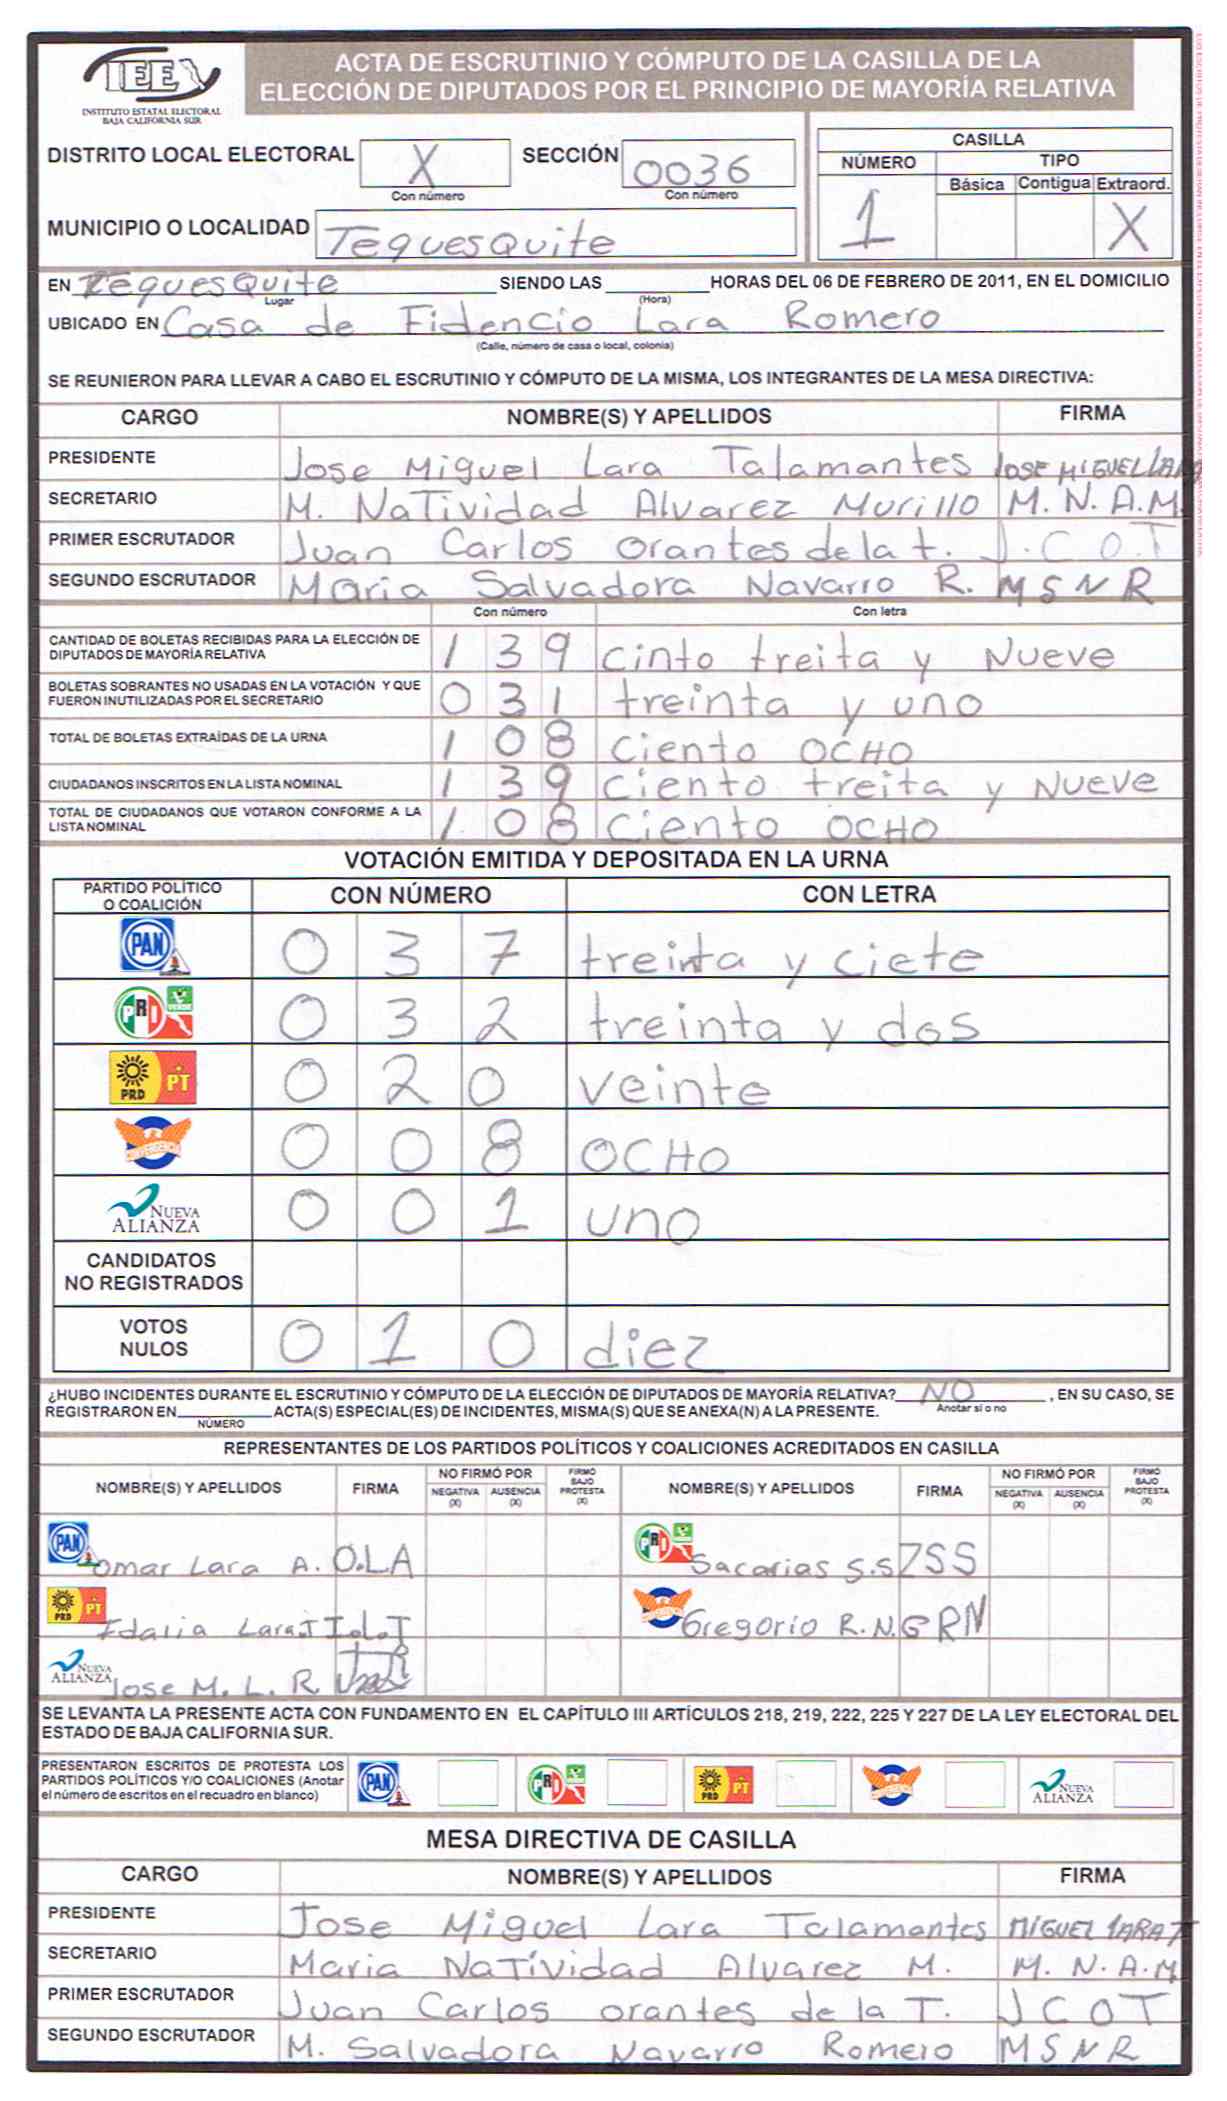 IEE
INSTITUTO ESTATAL ELECTORAL
BAJA CALIFORNIA SUR
ACTA DE ESCRUTINIO Y CÓMPUTO DE LA CASILLA DE LA
ELECCIÓN DE DIPUTADOS POR EL PRINCIPIO DE MAYORÍA RELATIVA
DISTRITO LOCAL ELECTORAL X SECCIÓN 0036
Con número Con número
MUNICIPIO O LOCALIDAD Tequesquite
CASILLA
NÚMERO TIPO
Básica Contigua Extraord.
1 X
EN Tequesquite SIENDO LAS HORAS DEL 06 DE FEBRERO DE 2011, EN EL DOMICILIO
Lugar (Hora)
UBICADO EN Casa de Fidencio Lara Romero
(Calle, número de casa o local, colonia)
SE REUNIERON PARA LLEVAR A CABO EL ESCRUTINIO Y CÓMPUTO DE LA MISMA, LOS INTEGRANTES DE LA MESA DIRECTIVA:
CARGO NOMBRE(S) Y APELLIDOS FIRMA
PRESIDENTE Jose Miguel Lara Talamantes JOSE MIGUEL LARA
SECRETARIO M. NaTividad Alvarez Murillo M. N. A. M.
PRIMER ESCRUTADOR Juan Carlos orantes de la t. J. C O. T
SEGUNDO ESCRUTADOR Maria Salvadora Navarro R. M S N R
Con número Con letra
CANTIDAD DE BOLETAS RECIBIDAS PARA LA ELECCIÓN DE
DIPUTADOS DE MAYORÍA RELATIVA 1 3 9 cinto treita y Nueve
BOLETAS SOBRANTES NO USADAS EN LA VOTACIÓN Y QUE
FUERON INUTILIZADAS POR EL SECRETARIO 0 3 1 treinta y uno
TOTAL DE BOLETAS EXTRAÍDAS DE LA URNA 1 0 8 ciento OCHO
CIUDADANOS INSCRITOS EN LA LISTA NOMINAL 1 3 9 ciento treita y Nueve
TOTAL DE CIUDADANOS QUE VOTARON CONFORME A LA
LISTA NOMINAL 1 0 8 ciento OCHO
VOTACIÓN EMITIDA Y DEPOSITADA EN LA URNA
PARTIDO POLÍTICO
O COALICIÓN CON NÚMERO CON LETRA
PAN 0 3 7 treinta y ciete
PRI VERDE 0 3 2 treinta y dos
PRD PT 0 2 0 veinte
CONVERGENCIA 0 0 8 OCHO
NUEVA
ALIANZA 0 0 1 uno
CANDIDATOS
NO REGISTRADOS
VOTOS
NULOS 0 1 0 diez
¿HUBO INCIDENTES DURANTE EL ESCRUTINIO Y CÓMPUTO DE LA ELECCIÓN DE DIPUTADOS DE MAYORÍA RELATIVA? NO , EN SU CASO, SE
Anotar si o no
REGISTRARON EN ACTA(S) ESPECIAL(ES) DE INCIDENTES, MISMA(S) QUE SE ANEXA(N) A LA PRESENTE.
NÚMERO
REPRESENTANTES DE LOS PARTIDOS POLÍTICOS Y COALICIONES ACREDITADOS EN CASILLA
NOMBRE(S) Y APELLIDOS FIRMA NO FIRMÓ POR NEGATIVA (X) AUSENCIA (X) FIRMÓ BAJO PROTESTA (X) NOMBRE(S) Y APELLIDOS FIRMA NO FIRMÓ POR NEGATIVA (X) AUSENCIA (X) FIRMÓ BAJO PROTESTA (X)
PAN omar Lara A. O.L.A PRI VERDE Sacarias S.S ZSS
PRD PT Idalia Lara.T I.L.T Gregorio R.N. GRN
NUEVA
ALIANZA Jose M. L. R.
SE LEVANTA LA PRESENTE ACTA CON FUNDAMENTO EN EL CAPÍTULO III ARTÍCULOS 218, 219, 222, 225 Y 227 DE LA LEY ELECTORAL DEL
ESTADO DE BAJA CALIFORNIA SUR.
PRESENTARON ESCRITOS DE PROTESTA LOS
PARTIDOS POLÍTICOS Y/O COALICIONES (Anotar
el número de escritos en el recuadro en blanco) PAN PRI PRD PT NUEVA ALIANZA
MESA DIRECTIVA DE CASILLA
CARGO NOMBRE(S) Y APELLIDOS FIRMA
PRESIDENTE Jose Miguel Lara Talamantes MIGUEL LARA T
SECRETARIO Maria NaTividad Alvarez M. M. N. A. M
PRIMER ESCRUTADOR Juan Carlos orantes de la T. J C O T
SEGUNDO ESCRUTADOR M. Salvadora Navarro Romero M S N R